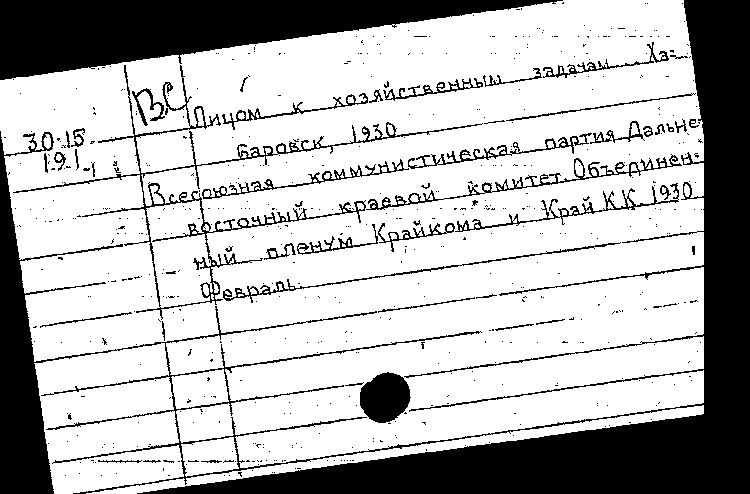 ВС
Лицом к хозяйственным задачам. Ха-
30.15
баровск, 1930
191
Всесоюзная коммунистическая партия Дальне-
восточный краевой комитет. Объединен-
ный пленум Крайкома и Край К.К. 1930
Февраль.